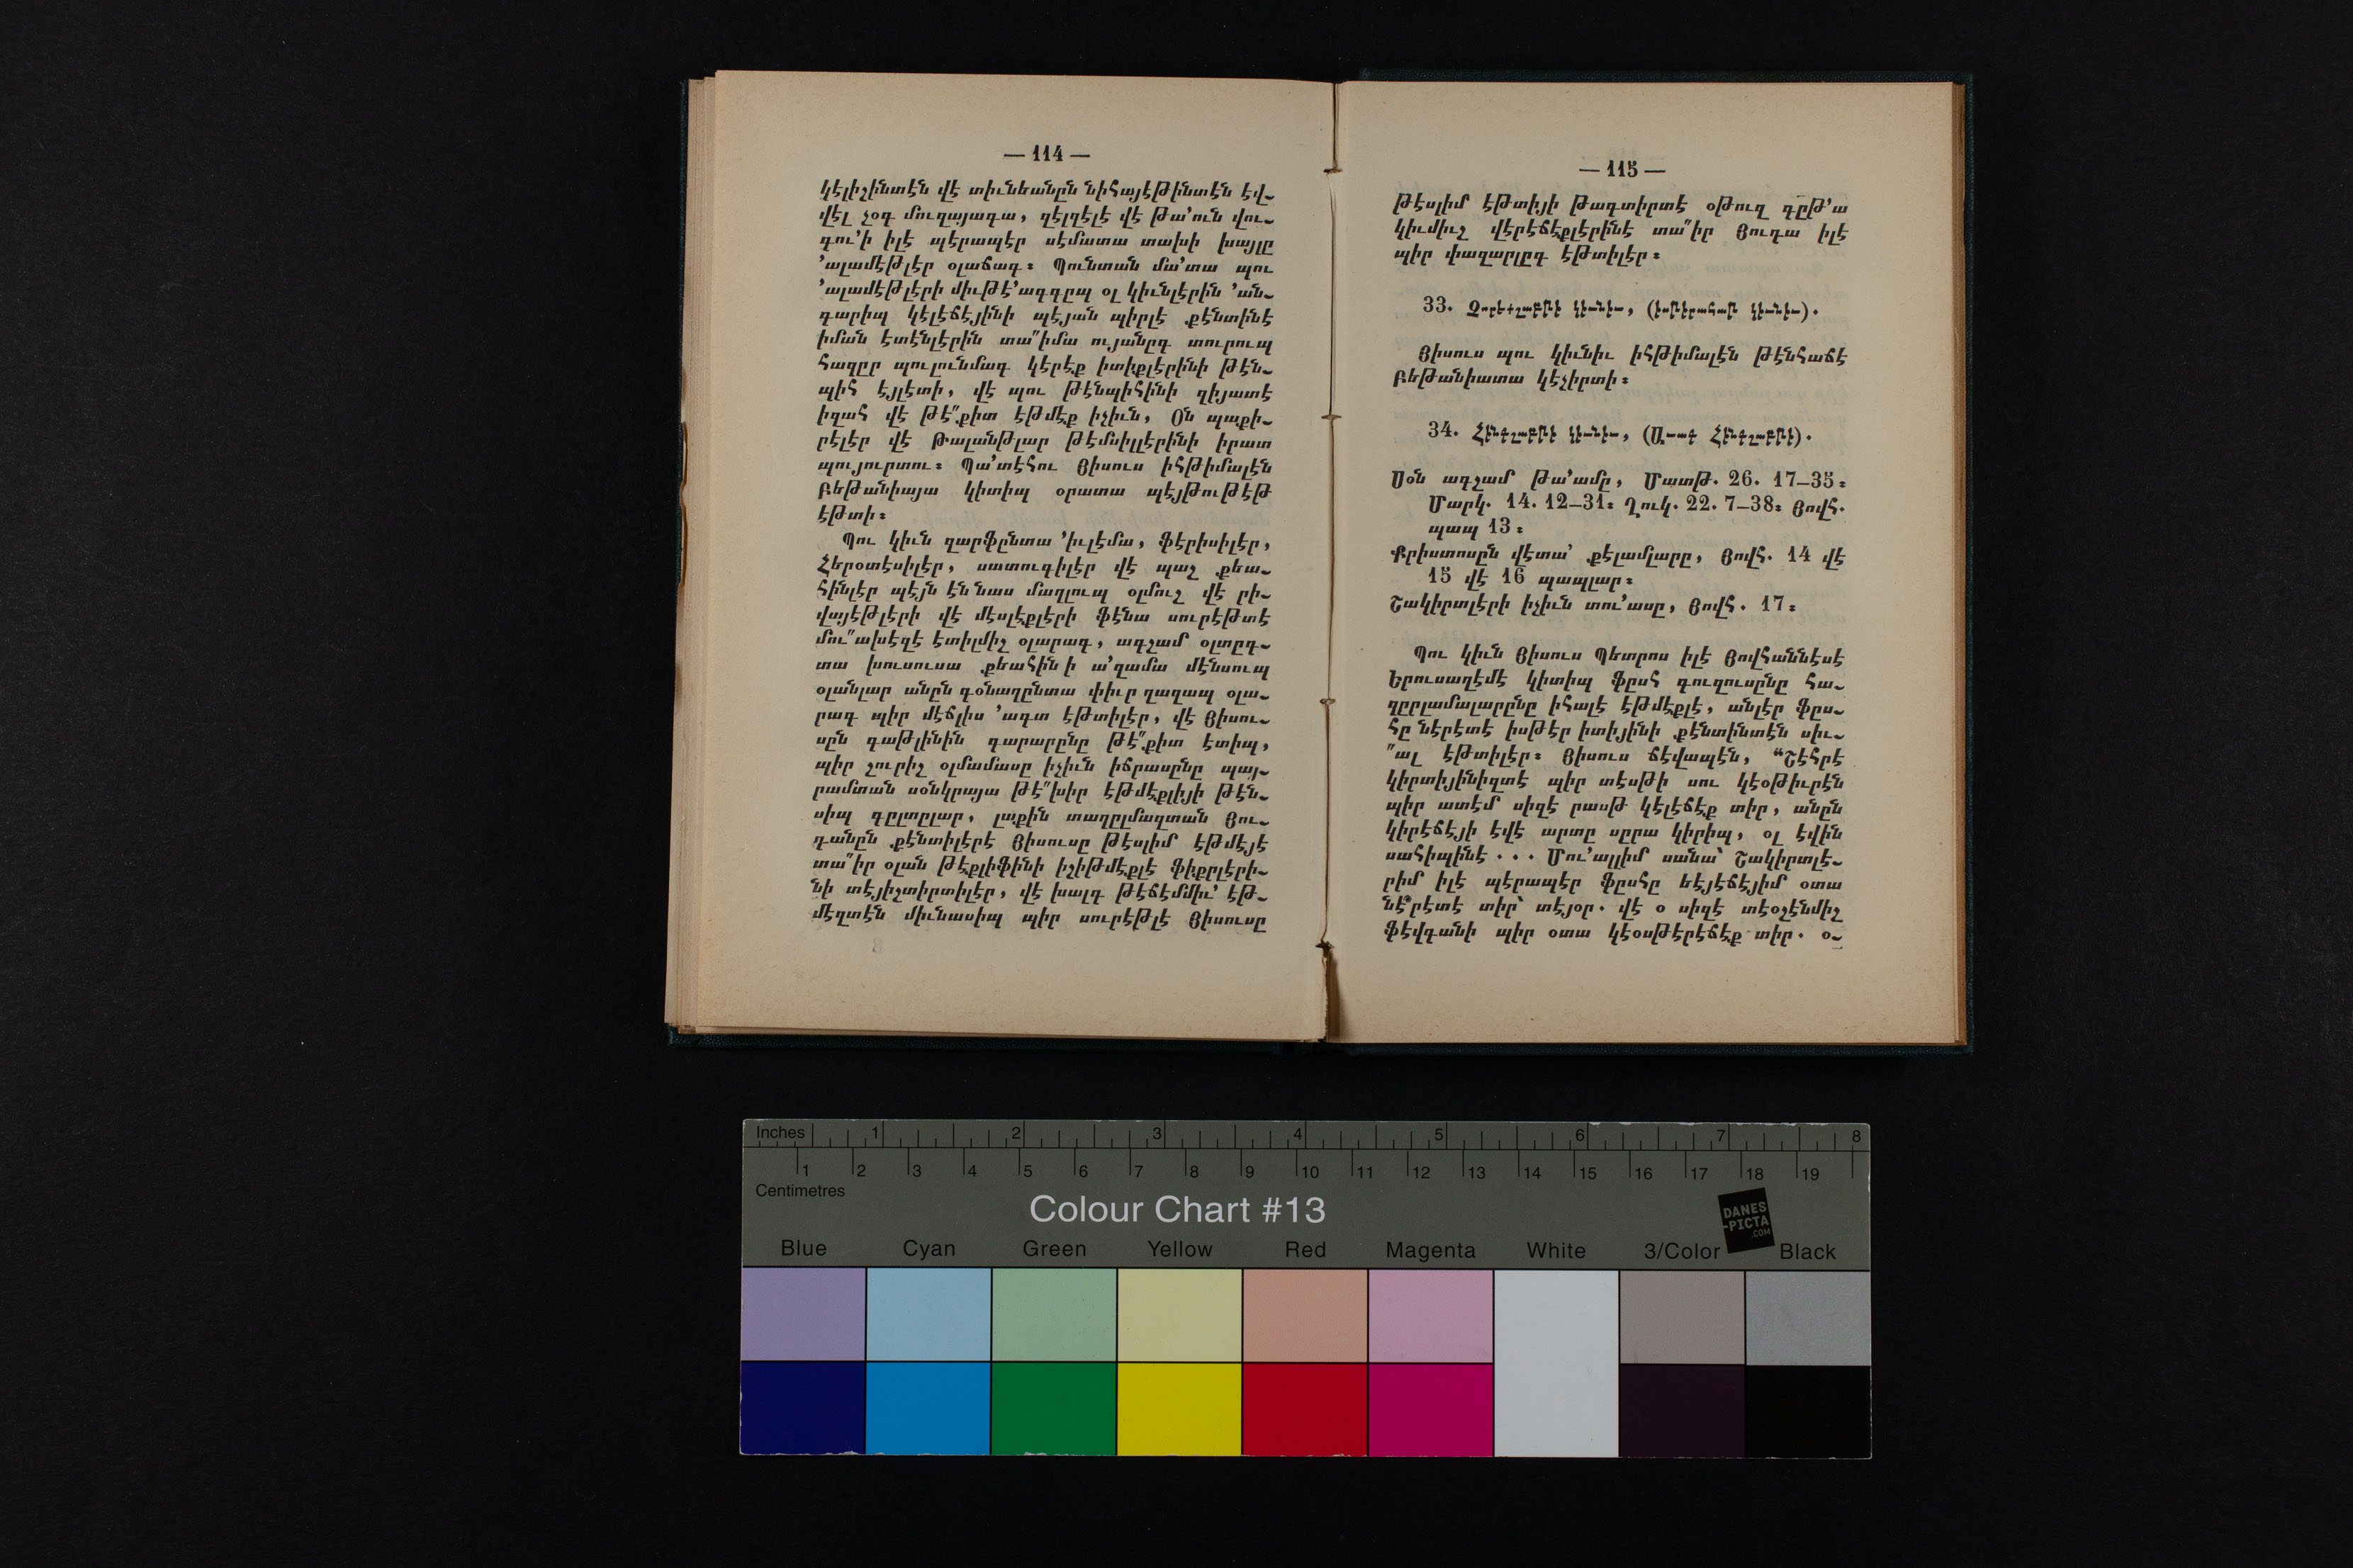 — 114 —
կէլիշինտէն վէ տիւնեանըն նիհայէթինտէն էվ֊
վէլ չօգ մուղայագա, զէլզէլէ վէ թա՚ուն վու֊
գու՚ի իլէ պէրապէր սէմատա տախի խայլը
՚ալամէթլէր օլաճագ։ Պունտան մա՚տա պու
՚ալամէթլէրի միւթէ՚ագգըպ օլ կիւնլէրին ՚ան֊
գարիպ կէլէճէյինի պէյան պիրլէ քէնտինէ
իման էտէնլէրին տա՞իմա ույանըգ տուրուպ
հազըր պուլունմագ կէրէք իտիքլէրինի թէն֊
պիհ էյլէտի, վէ պու թէնպիհինի զիյատէ
իզահ վէ թէ՞քիտ էթմէք իչիւն, Օն պաքի֊
րէլէր վէ թալանթլար թէմսիլլէրինի իրատ
պույուրտու։ Պա՚տէհու Յիսուս իհթիմալէն
Բեթանիայա կիտիպ օրատա պէյթութէթ
էթտի։
Պու կիւն ղարֆընտա ՚իւլէմա, ֆէրիսիլէր,
Հերօտէսիլէր, սատուգիլէր վէ պաշ քեա֊
հինլէր պէյն էն նաս մաղլուպ օլմուշ վէ րի֊
վայէթլէրի վէ մէսլէքլէրի ֆէնա սուրէթտէ
մու՞ախէզէ էտիլմիշ օլարագ, ագշամ օլտըգ֊
տա խուսուսա քեահին ի ա՚զամա մէնսուպ
օլանլար անըն գօնաղընտա փիւր ղաղապ օլա֊
րագ պիր մէճլիս ՚ագտ էթտիլէր, վէ Յիսու֊
սըն գաթլինին գարարընը թէ՞քիտ էտիպ,
պիր շուրիշ օլմամասը իչիւն իճրասընը պայ֊
րամտան սօնկրայա թէ՞խիր էթմէքլիյի թէն֊
սիպ գըլտըլար, լաքին տաղըլմազտան Յու֊
դանըն քէնտիլէրէ Յիսուսը թէսլիմ էթմէյէ
տա՞իր օլան թէքլիֆինի իշիթմէքլէ ֆիքրլէրի֊
նի տէյիշտիրտիլէր, վէ խալգ թէճէմմիւ՚ էթ֊
մէզտէն միւնասիպ պիր սուրէթլէ Յիսուսը
— 115 —
թէսլիմ էթտիյի թագտիրտէ օթուզ գըթ՚ա
կիւմիւշ վէրէճէքլէրինէ տա՞իր Յուդա իլէ
պիր փազարլըգ էթտիլէր։
33. Չորեքշաբթի կիւնիւ,
Յիսուս պու կիւնիւ իհթիմալէն թէնհաճէ
Բեթանիատա կէչիրտի։
34. Հինգշաբթի կիւնիւ, (Աւագ Հինգշաբթի).
Սօն ագշամ թա՚ամը, Մատթ. 26. 17—35։
Մարկ. 14. 12—31։ Ղուկ. 22. 7—38։ Յովհ.
պապ 13։
Քրիստոսըն վէտա՚ քէլամլարը, Յովհ. 14 վէ
15 վէ 16 պապլար։
Շակիրտլէրի իչիւն տու՚ասը, Յովհ. 17։
Պու կիւն Յիսուս Պետրոս իլէ Յովհաննէսէ
Երուսաղէմէ կիտիպ ֆըսհ գուզուսընը հա֊
զըրլամալարընը իհալէ էթմէքլէ, անլէր ֆըս֊
հը նէրէտէ իսթէր իտիյինի քէնտինտէն սիւ֊
՞ալ էթտիլէր։ Յիսուս ճէվապէն, “Շէհրէ
կիրտիյինիզտէ պիր տէսթի սու կէօթիւրէն
պիր ատէմ սիզէ րասթ կէլէճէք տիր, անըն
կիրէճէյի էվէ արտը սըրա կիրիպ, օլ էվին
սահիպինէ . . . Մու՚ալլիմ սանա՝ Շակիրտլէ֊
րիմ իլէ պէրապէր ֆըսհը եէյէճէյիմ օտա
նէրէտէ տիր՝ տէյօր. վէ օ սիզէ տէօշէնմիշ
ֆէվգանի պիր օտա կէօսթէրէճէք տիր. օ֊
Inches 1 2 3 4 5 6 7 8
1 2 3 4 5 6 7 8 9 10 11 12 13 14 15 16 17 18 19
Centimetres
Colour Chart #13
DANES
-PICTA
.COM
Blue Cyan Green Yellow Red Magenta White 3/Color Black